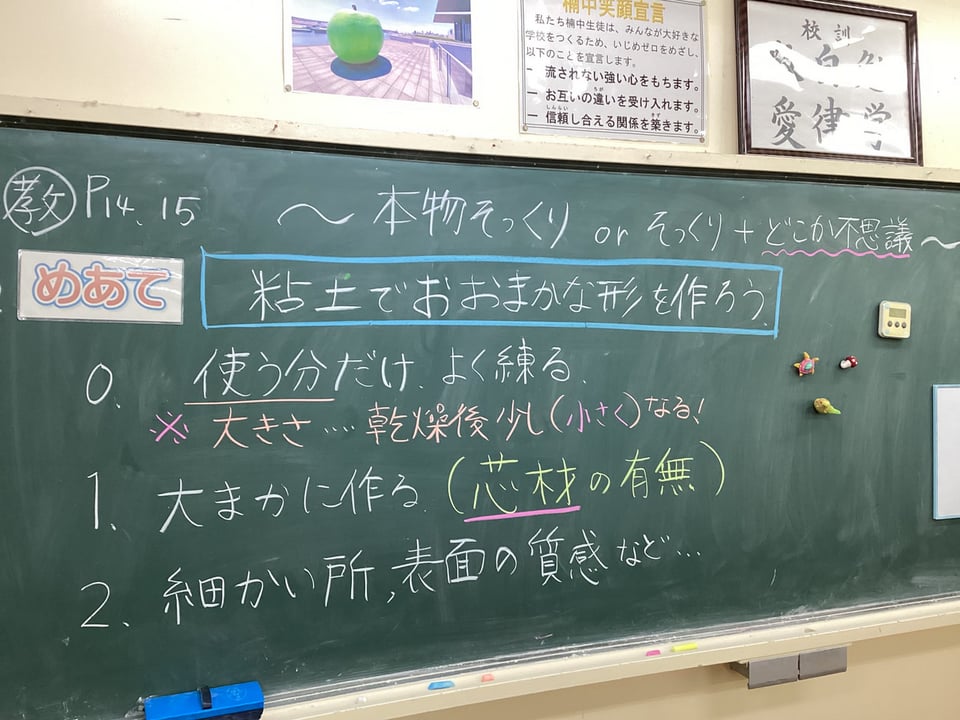 楠中笑顔宣言
私たち楠中生徒は、みんなが大好きな
学校をつくるため、いじめゼロをめざし、
以下のことを宣言します。
一 流されない強い心をもちます。
一 お互いの違いを受け入れます。
一 信頼し合える関係を築きます。
校訓
自
愛律学
教 P14、15
〜本物そっくり or そっくり+どこか不思議〜
めあて
粘土でおおまかな形を作ろう。
0. 使う分だけ、よく練る。
※大きさ…. 乾燥後少し(小さく)なる!
1. 大まかに作る。(芯材の有無)
2. 細かい所,表面の質感など…